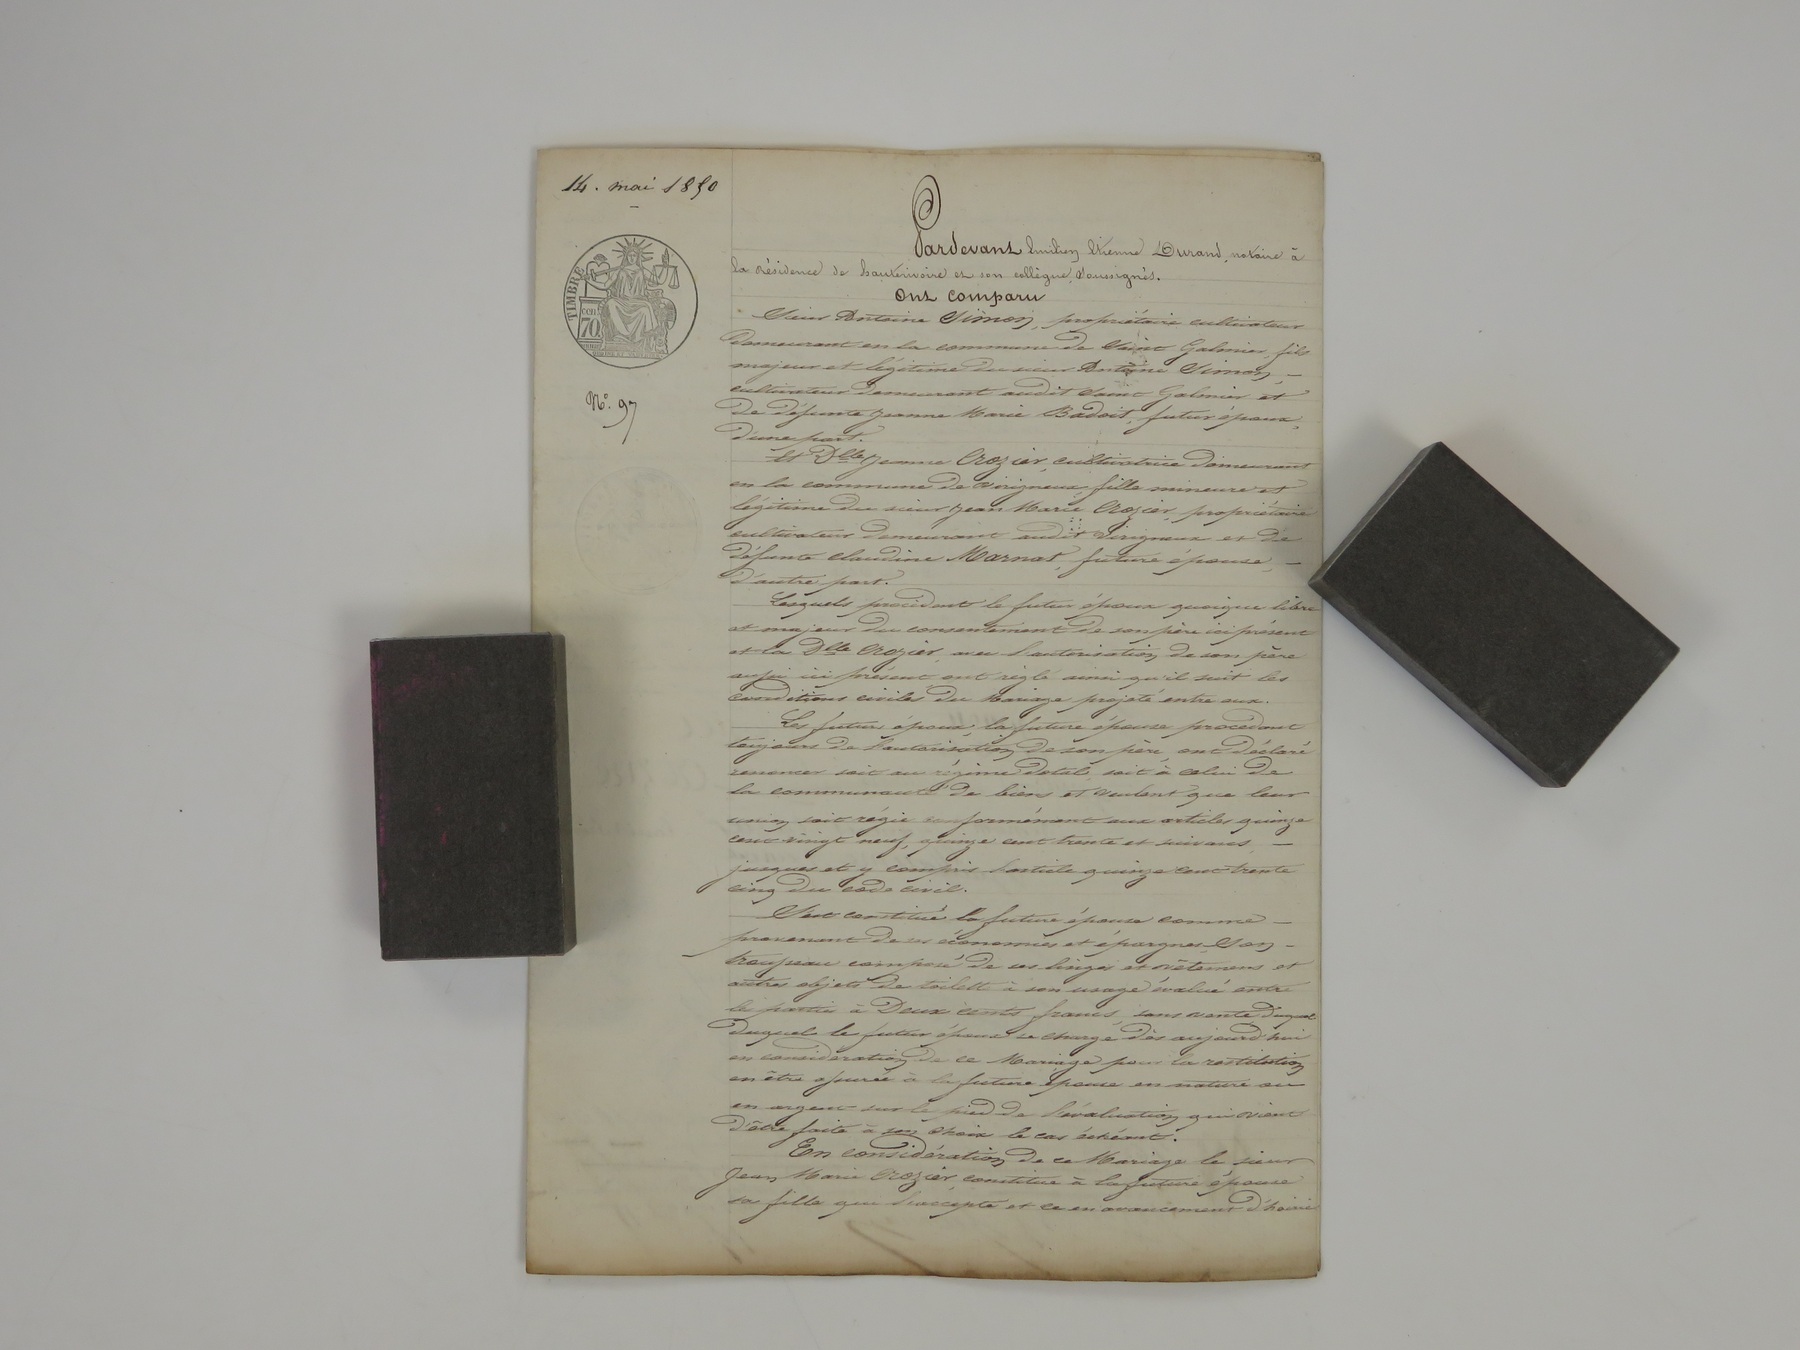 14. mai 1850
TIMBRE
cen
70
N.° 97
Pardevant Emilien Etienne Durand, notaire à
la résidence de hauterivoire et son collègue, soussignés.
Ont comparu
Sieur Antoine Simon, propriétaire cultivateur
demeurant en la commune de Saint Galmier, fils
majeur et légitime du sieur Antoine Simon, —
cultivateur demeurant audit Saint Galmier et
de défunte Jeanne Marie Badoit, futur époux,
d'une part.
Et Dlle Jeanne Crozier, cultivatrice demeurant
en la commune de Virigneux, fille mineure et
légitime du sieur Jean Marie Crozier, propriétaire
cultivateur demeurant audit Virigneux et de
défunte Claudine Marnat, future épouse, —
d'autre part.
Lesquels procédant le futur époux quoique libre
et majeur du consentement de son père ici présent
et la Dlle Crozier, avec l'autorisation de son père
aussi ici présent ont réglé ainsi qu'il suit les
conditions civiles du Mariage projeté entre eux.
Les futurs époux, la future épouse procédant
toujours de l'autorisation de son père, ont déclaré
renoncer soit au régime dotal, soit à celui de
la communauté de biens et veulent que leur
union soit régie conformément aux articles quinze
cent vingt neuf, quinze cent trente et suivans, —
jusques et y compris l'article quinze cent trente
cinq du code civil.
S'est constitué la future épouse comme —
provenant de ses économies et épargnes, Son —
trousseau composé de ses linges et vêtemens et
autres objets de toilette à son usage évalué entre
les parties à Deux cents francs, sans vente duquel
duquel le futur époux se charge dès aujourd'hui
en considération de ce Mariage pour la restitution
en être opérée à la future épouse en nature ou
en argent sur le pied de l'évaluation qui vient
d'être faite à son choix le cas échéant.
En considération de ce Mariage le sieur
Jean Marie Crozier constitue à la future épouse
sa fille qui l'accepte et ce en avancement d'hoirie